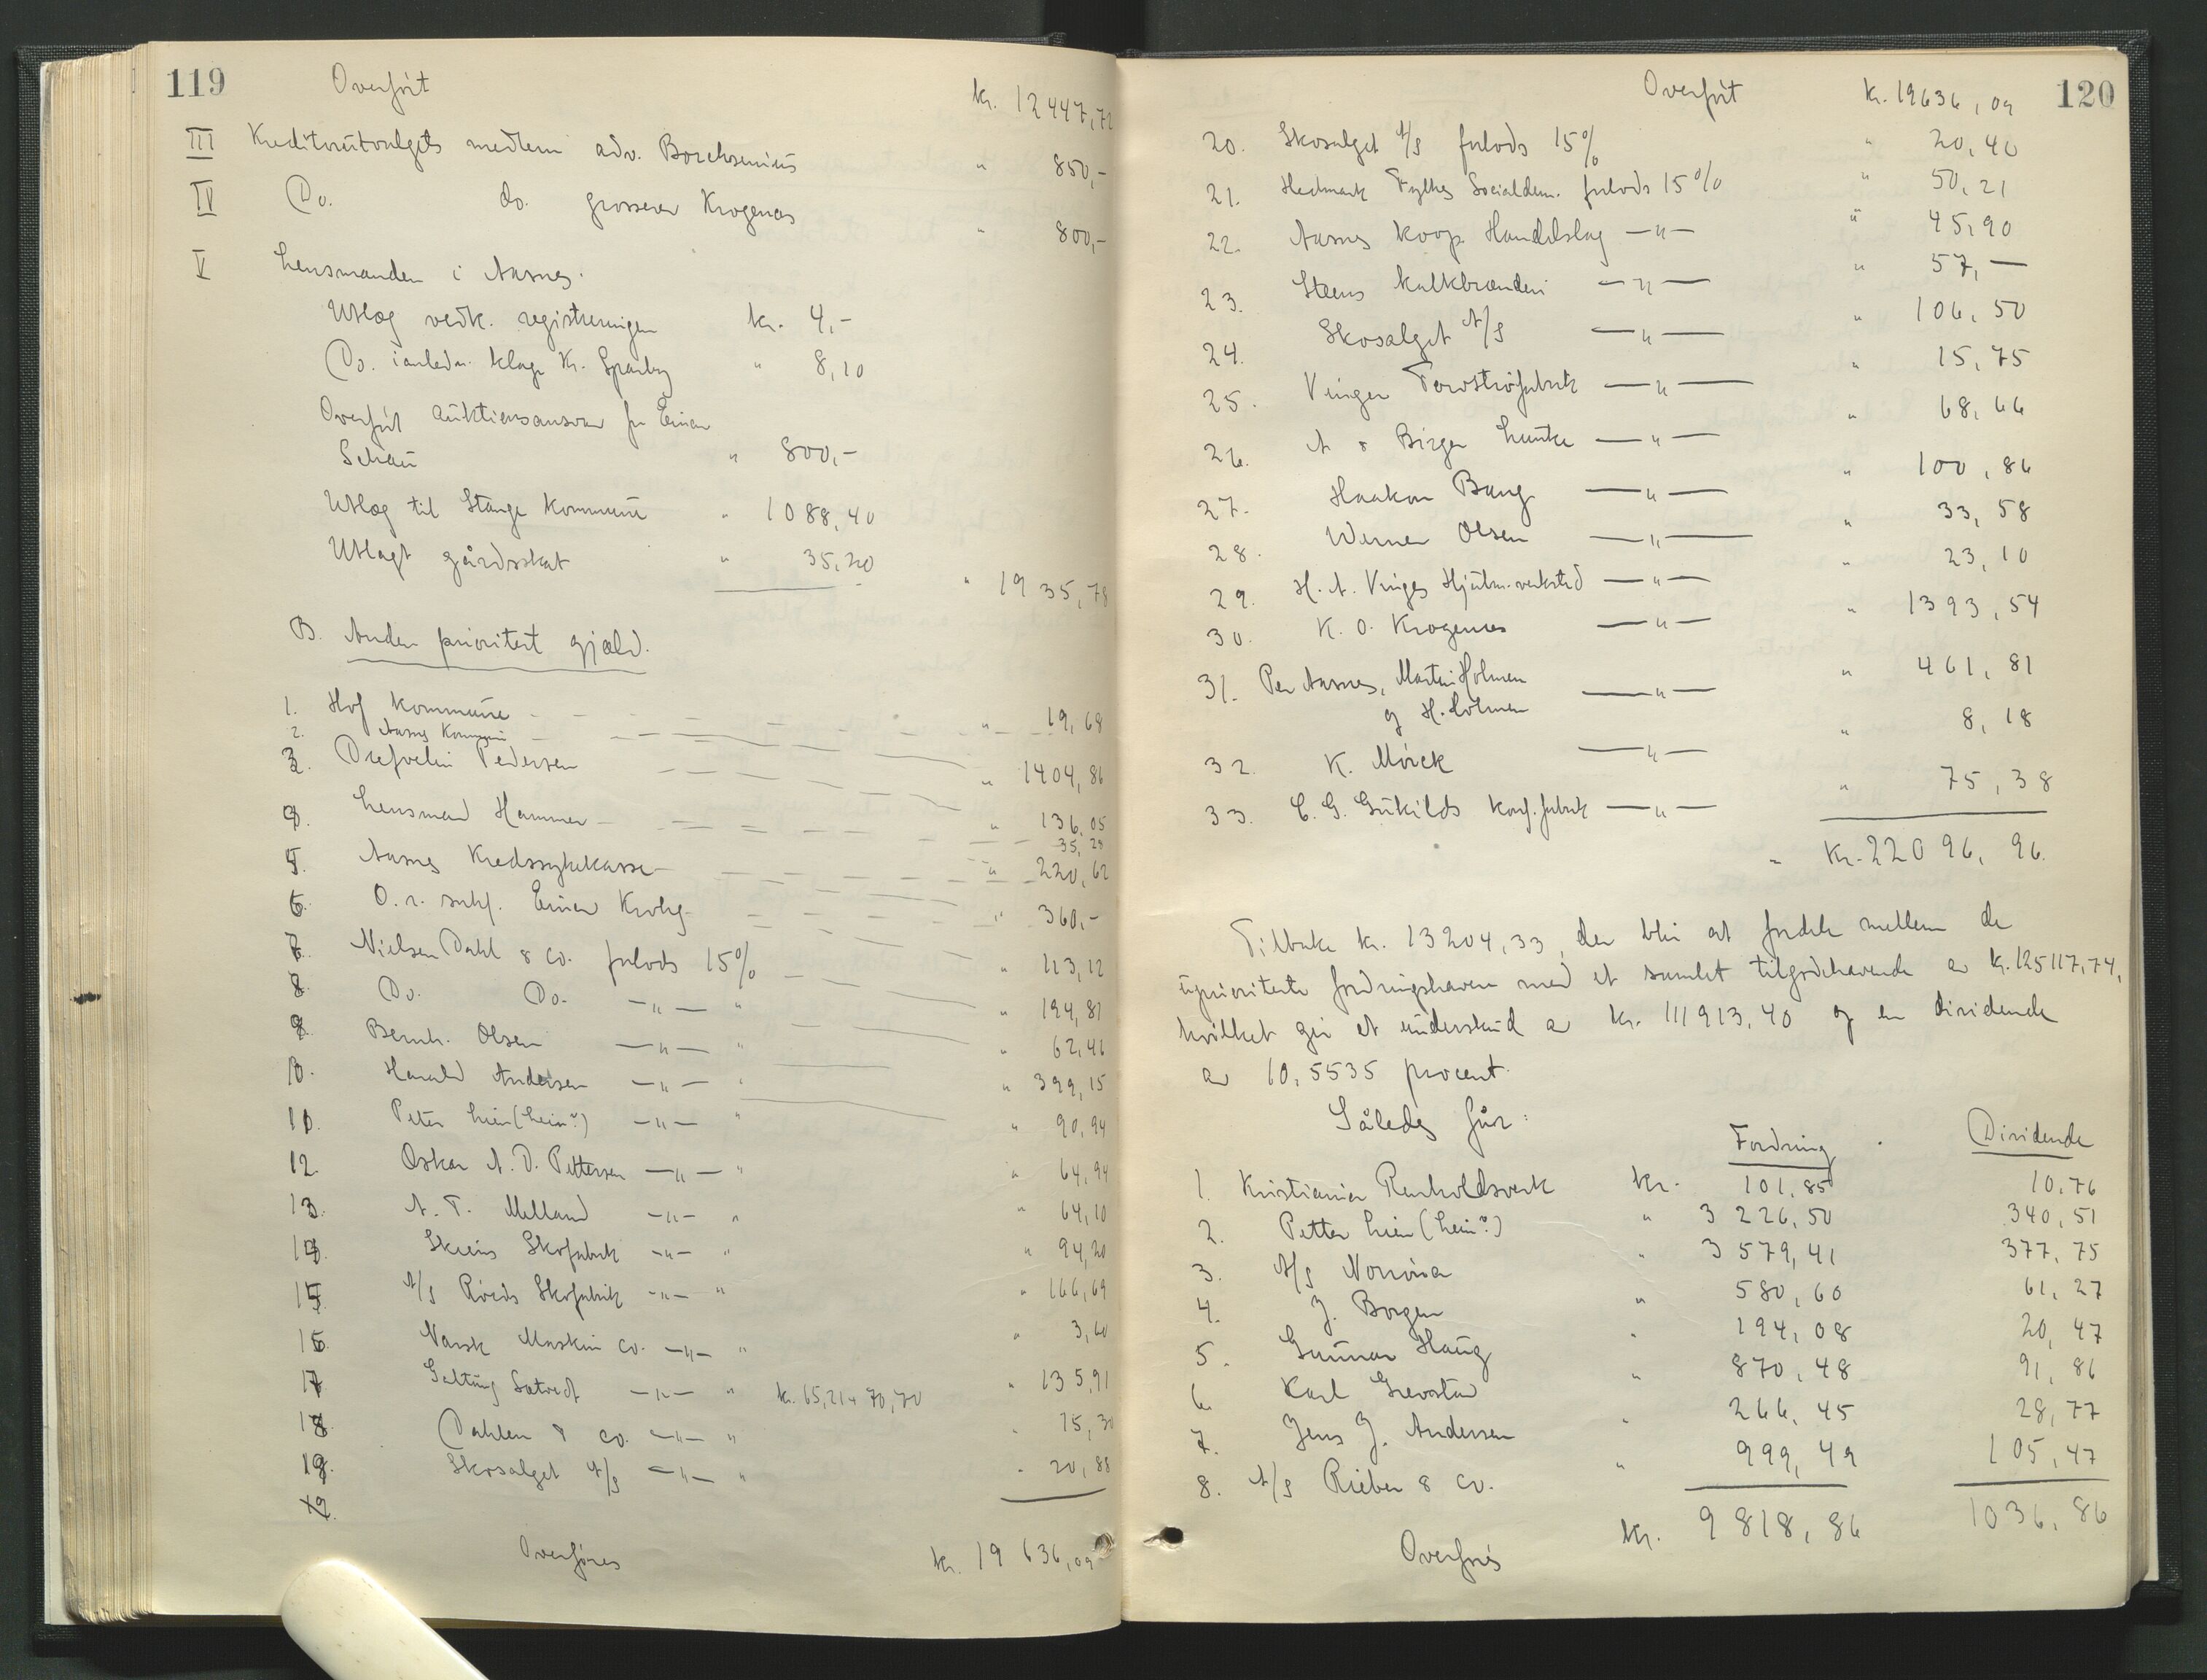 119
Overført kr. 12447,72
III Kreditorutvalgets medlem adv. Borchsenius " 850,-
IV Do. do. grosserer Krogenæs " 800,-
V Lensmanden i Aasnes.
Utlæg vedk. registreringen kr. 4,-
Do. i anledn. klage K. Sparby " 8,10
Overført auktionsansvar for Einar
Schau " 800,-
Utlæg til Stange kommune " 1088,40
Utlagt gårdsskat " 35,20
" 1935,78
B. Anden prioritert gjæld.
1. Hof kommune " 19,68
2. Aasnes Kommune
3. Pedersen " 1404,86
4. Lensmand Hammer " 136,05
35,28
5. Aasnes Kredssykekasse " 220,62
6. O.r. sakf. Einar Krohg " 360,-
7. Nielsen Dahl & Co. forlods 15% " 113,12
8. Do. Do. —"— " " 194,81
9. Bernh. Olsen —"— " " 62,46
10. Harald Andersen —"— " " 399,15
11. Peter Lien (Lein?) —"— " " 90,94
12. Oskar A. D. Pettersen —"— " " 64,94
13. A. T. Melland —"— " " 64,10
14. Skiens Skofabrik —"— " " 94,20
15. A/S Røeds Skofabrik —"— " " 166,69
16. Norsk Maskin Co. —"— " " 3,60
17. Galtung Sætvedt —"— " kr. 65,21 + 70,70 " 135,91
18. Dahlen & Co. —"— " " 15,30
19. Skosalget A/S —"— " " 20,88
19.
Overføres kr. 19 636,09
120
Overført kr. 19636,09
20. Skosalget A/S forlods 15% " 20,40
21. Hedmark Fylkes Socialdem. forlods 15% " 50,21
22. Aasnes koop. Handelslag —"— " 45,90
23. Steens kalkbrænderi —"— " 57,—
24. Skosalget A/S —"— " 106,50
25. Vinger Torvstrøfabrik —"— " 15,75
26. A & Birger Lunke —"— " 68,66
27. Haakon Bang —"— " 100,86
28. Werner Olsen —"— " 33,58
29. H. A. Vinges Hjulm.verksted —"— " 23,10
30. K. O. Krogenæs —"— " 1393,54
31. Per Aasnes, Martin Holmen
og H. Holmen —"— " 461,81
32. K. Mørck —"— " 8,18
33. C. G. Gukilds konf.fabrik —"— " 75,38
" Kr. 22096,96.
Tilbake kr. 13204,33, der blir at fordele mellem de
uprioriterte fordringshavere med et samlet tilgodehavende av kr. 125117,74,
hvilket gir et underskud av kr. 111913,40 og en dividende
av 10,5535 procent.
Således får:
Fordring. Dividende
1. Kristiania Renholdsverk kr. 101,85 10,76
2. Petter Lien (Lein?) " 3 226,50 340,51
3. A/S Norrøna " 3 579,41 377,75
4. J. Borgen " 580,60 61,27
5. Gunnar Haug " 194,08 20,47
6. Karl Grevstad " 870,48 91,86
7. Jens J. Andersen " 266,45 28,77
8. A/S Rieber & Co. " 999,49 105,47
Overføres kr. 9 818,86 1036,86